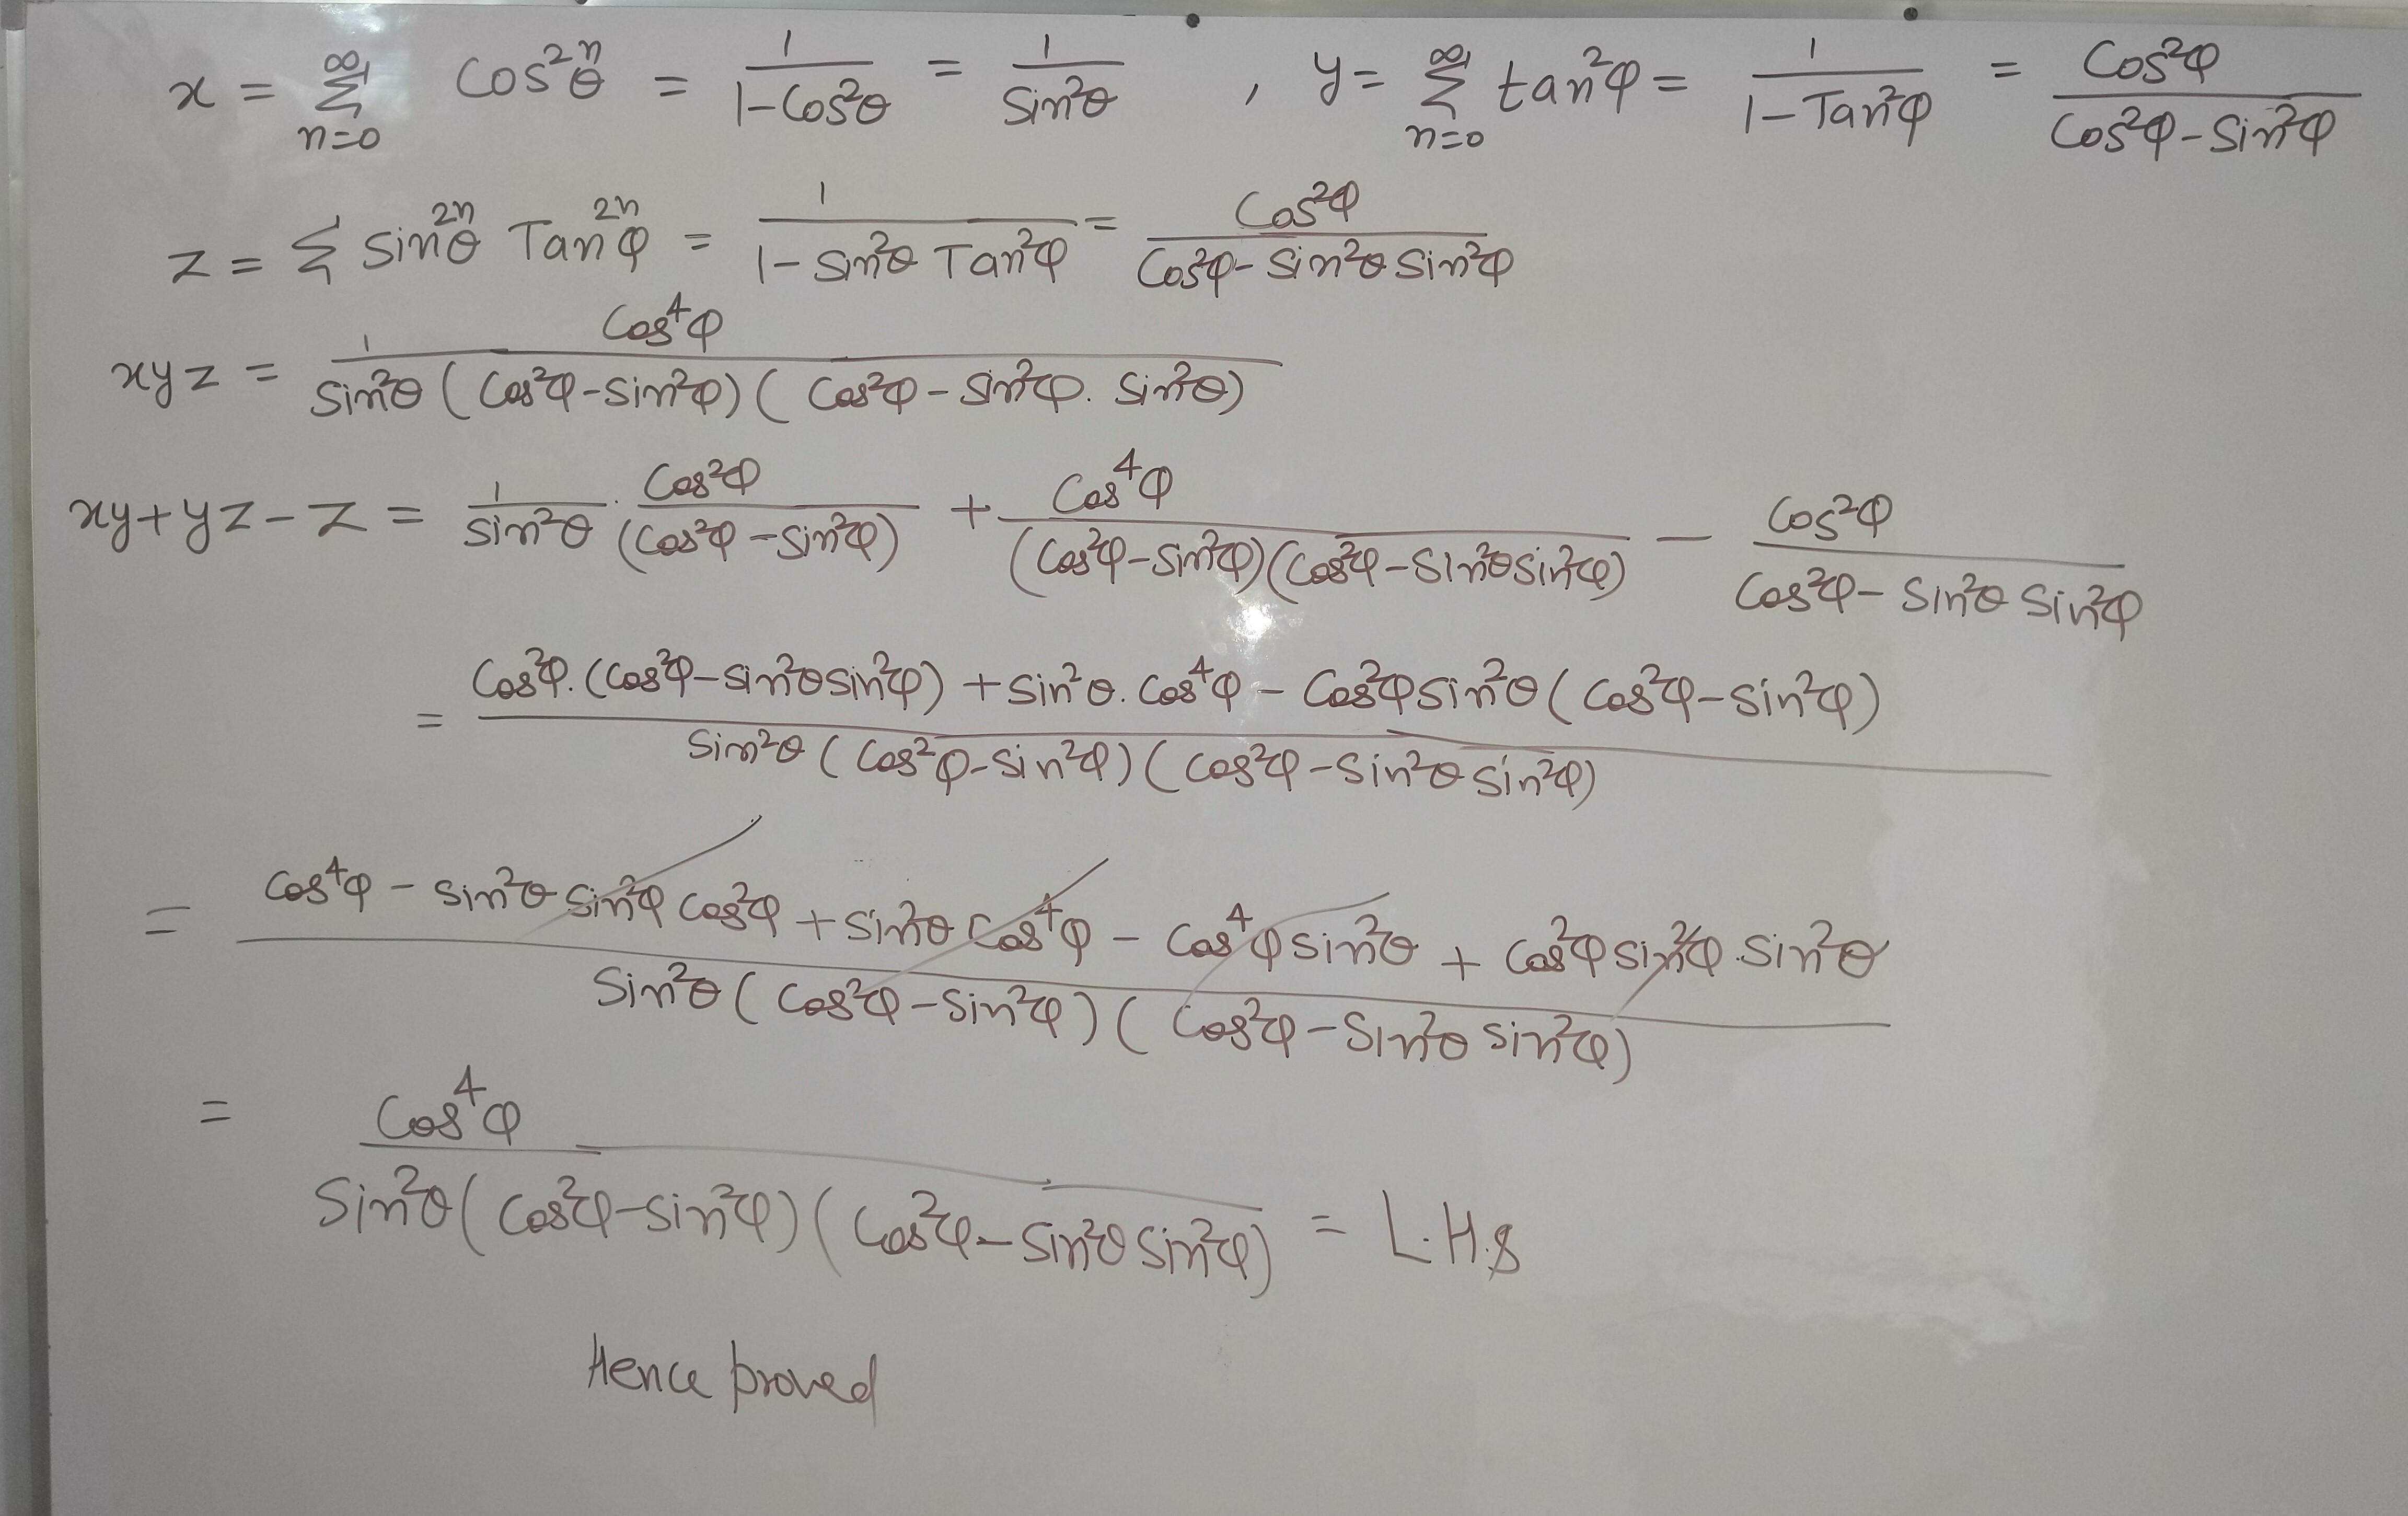 x = ∑_{n=0}^{∞} Cos^{2n}θ = 1/(1-Cos²θ) = 1/Sin²θ , y = ∑_{n=0}^{∞} tan²φ = 1/(1-Tan²φ) = Cos²φ/(Cos²φ-Sin²φ)
z = ∑ Sin^{2n}θ Tan^{2n}φ = 1/(1-Sin²θ Tan²φ) = Cos²φ/(Cos²φ-Sin²θ Sin²φ)
xyz = 1 Cos⁴φ/(Sin²θ (Cos²φ-Sin²φ) (Cos²φ-Sin²φ. Sin²θ))
xy+yz-z = 1/Sin²θ . Cos²φ/(Cos²φ-Sin²φ) + Cos⁴φ/((Cos²φ-Sin²φ)(Cos²φ-Sin²θSin²φ)) - Cos²φ/(Cos²φ-Sin²θ Sin²φ)
= (Cos²φ.(Cos²φ-Sin²θSin²φ) + Sin²θ.Cos⁴φ - Cos²φSin²θ(Cos²φ-Sin²φ))/(Sin²θ(Cos²φ-Sin²φ)(Cos²φ-Sin²θ Sin²φ))
= (Cos⁴φ - Sin²θ Sin²φ Cos²φ + Sin²θ Cos⁴φ - Cos⁴φ Sin²θ + Cos²φ Sin²φ.Sin²θ)/(Sin²θ(Cos²φ-Sin²φ)(Cos²φ-Sin²θ Sin²φ))
= Cos⁴φ/(Sin²θ(Cos²φ-Sin²φ)(Cos²φ-Sin²θ Sin²φ)) = L.H.S
Hence proved